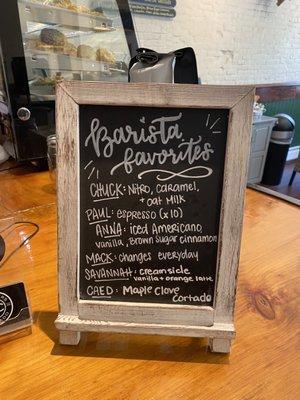 Barista
favorites
CHUCK: Nitro, caramel,
+ oat milk
PAUL: espresso (x10)
ANNA: iced Americano,
vanilla, Brown sugar cinnamon
MACK: changes everyday
SAVANNAH: creamsicle
vanilla + orange latte
CAED: Maple Clove
Cortado